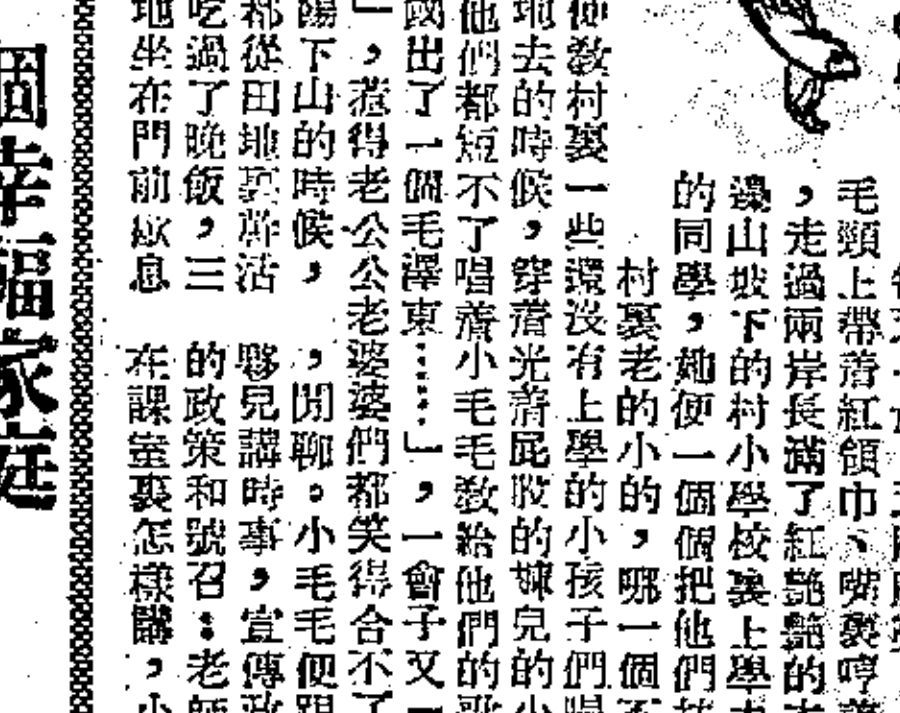 毛頸上帶着紅領巾、嘴裏哼着
，走過兩岸長滿了紅艷艷的
邊山坡下的村小學校裏上學
的同學，她便一個個把他們
村裏老的小的，哪一個不
便教村裏一些還沒有上學的小孩子們唱
地去的時候，穿着光着屁股的 兒的小
他們都短不了唱着小毛毛教給他們的歌
國出了一個毛澤東……」，一會子又一
」，惹得老公公老婆婆們都笑得合不了
陽下山的時候，
都從田地裏幹活
吃過了晚飯，三
地坐在門前歇息
，閒聊。小毛毛便跟
夥兒講時事，宣傳政
的政策和號召：老師
在課室裏怎樣講，小
個幸福家庭